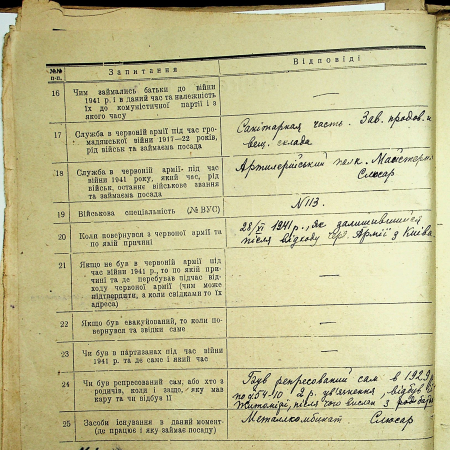 №№ п-п. Запитання Відповіді
16 Чим займались батьки до війни
1941 р. і в даний час та належність
їх до комуністичної партії і з
якого часу —
17 Служба в червоній армії під час гро-
мадянської війни 1917—22 років,
рід військ та займаєна посада
Санітарная часть. Зав. продов. и
вещ. склада
18 Служба в червоній армії під час
війни 1941 року, який час, рід
військ, останнє військове звання
та займаєна посада
Артилерийський полк.
Слюсар
19 Військова спеціальність (№ ВУС) №113.
20 Коли повернувся з червоної армії та
по якій причині
28/VI 1941 р., як залишившейся
після відходу чр. Армії з Київа
21 Якщо не був в червоній армії під
час війни 1941 р., то по якій при-
чині та де перебував підчас від-
ходу червоної армії (чим може
підтвердити, а коли свідками то їх
адреса) —
22 Якщо був евакуйований, то коли по-
вернувся та звідки саме —
23 Чи був в партизанах під час війни
1941 р. та де саме і який час —
24 Чи був репресований сам, або хто з
родичів, коли і защо, яку мав
кару та чи відбув її
Був репресований сам в 1929 р
по у 54-10 2 р. ув'язнення, відбув в
Житомірі, після чого вислан з
25 Засоби існування в даний момент
(де працює і яку займає посаду)
Металкомбинат Слюсар